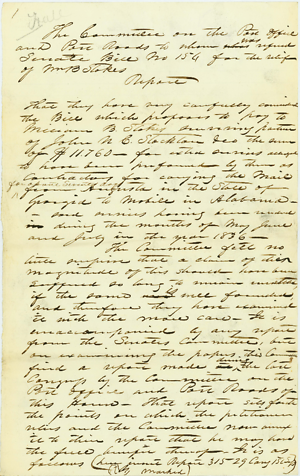 The Committee on the Post Office
and Post Roads to whom was referred
Senate Bill No 154 for the relief
of Wm B Stokes
Report
That they have very carefully examined
the Bill which proposes to pay to
William B Stokes surviving partner
of John N C Stockton Dec the sum
of $11760 for extra services alleged
to have been performed by them as
Contractors for carrying the Mail
from Augusta in the State of
Georgia to Mobile in Alabama
said service having been
during the months of May June
and July in the year 1836
The Committee felt no
little surprise that a claim of this
magnitude if this should have been
suffered so long to remain
if the same was well founded
and therefore they have examined
it with the more care. It is
unaccompanied by any report
from the Senates Committee, but
on examining the papers, this Com
find a report made the last
Congress by the Committee on the
Post Office and Post Roads of
this House. That report sets forth
the points on which the petitioner
relies and the Committee now annex
it to their report that he may have
the full benefit thereof. It is as
follows (here insert Report 315 29 Cong 1 Sess
marked)